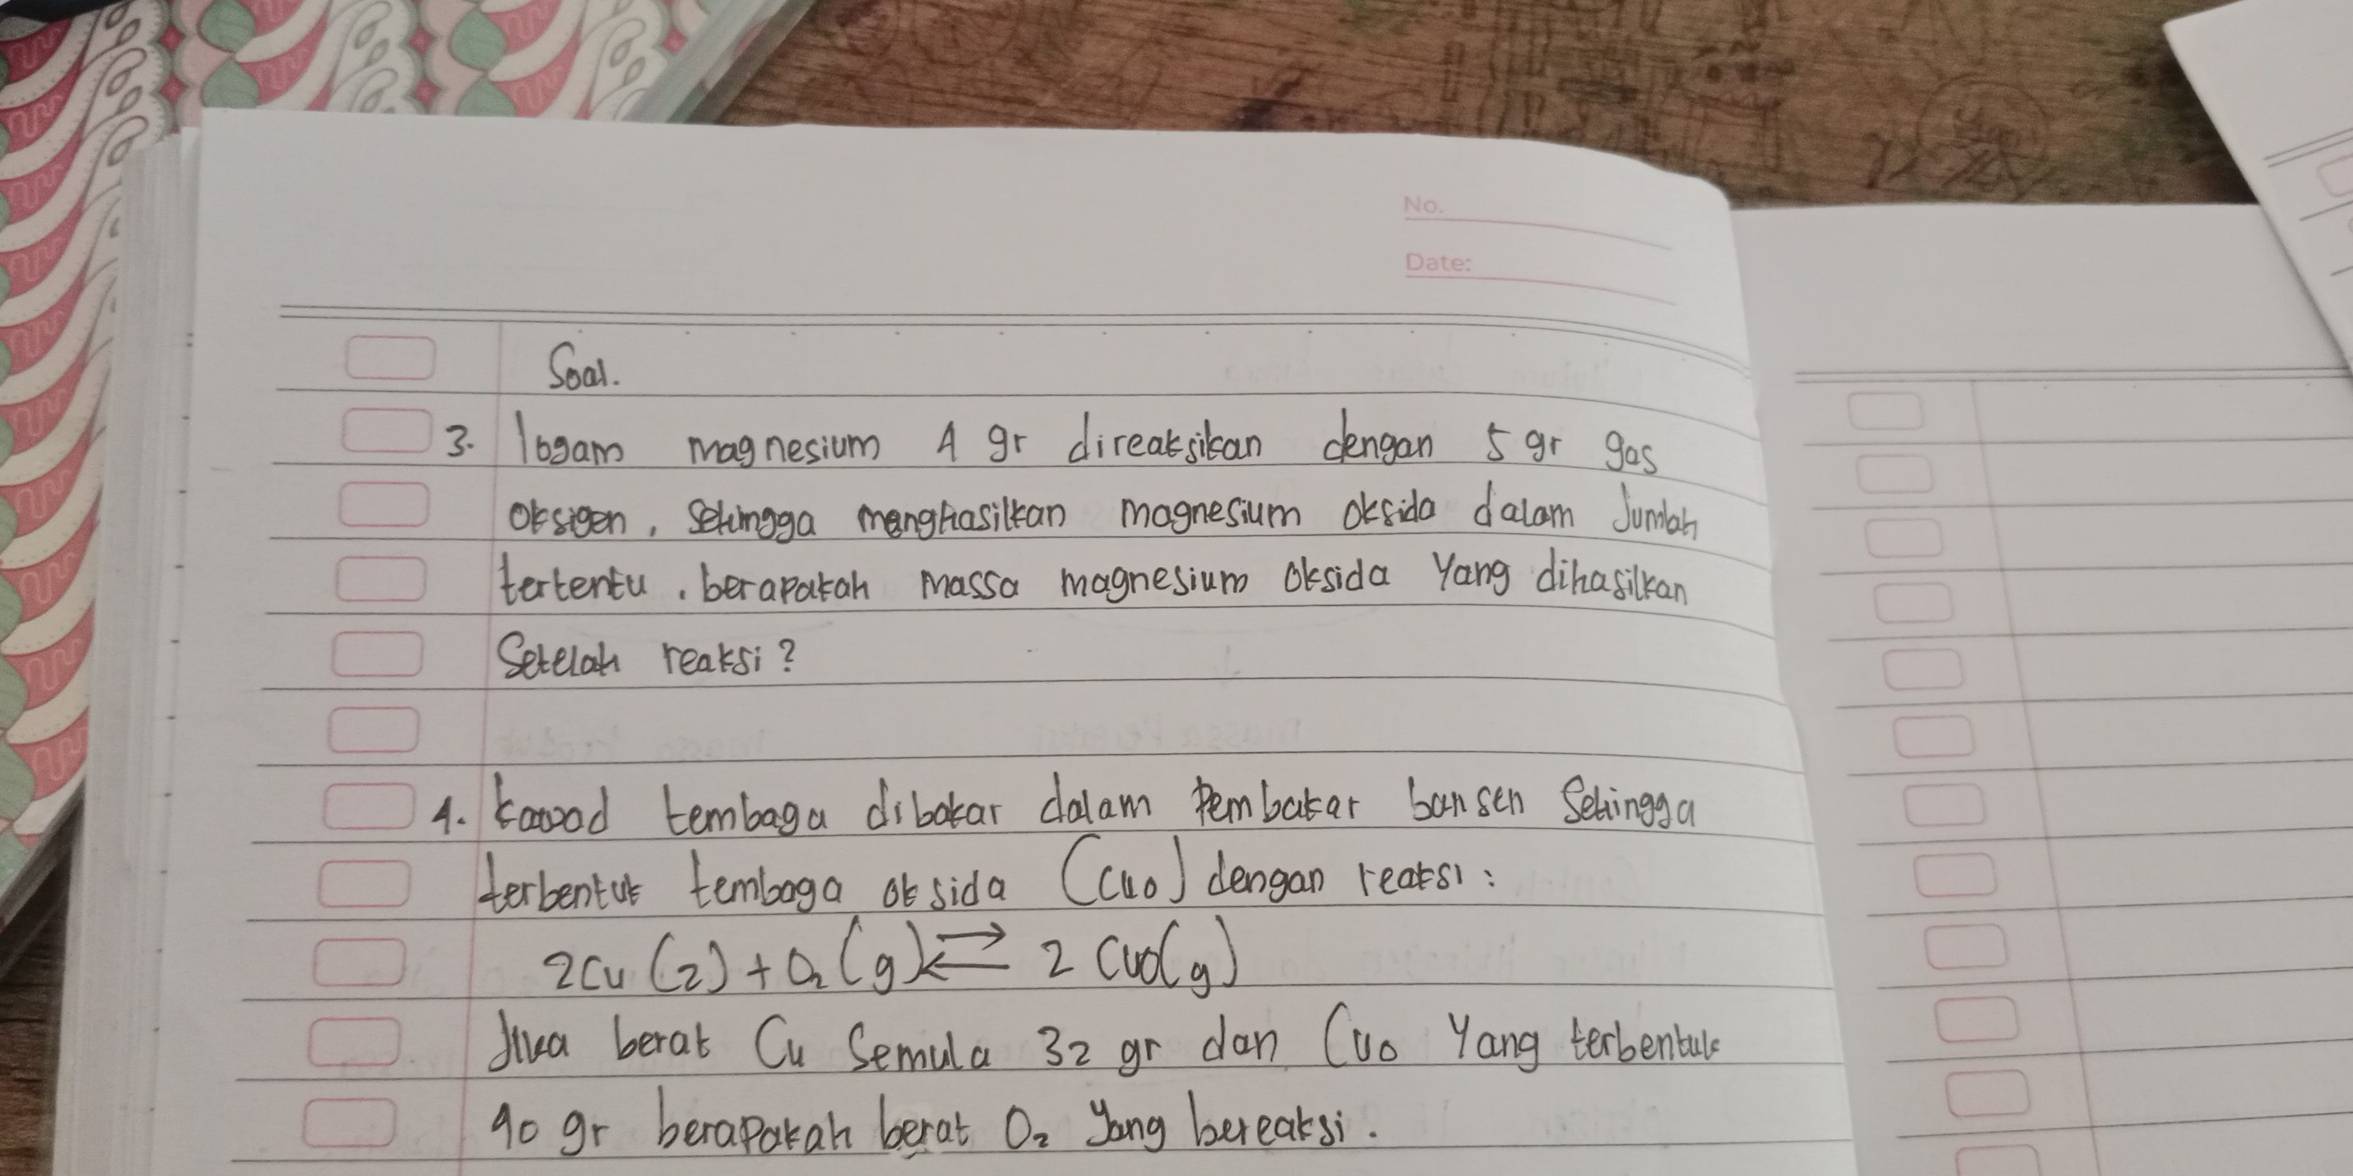 No.
Date:
Soal.
3. logam magnesium 4 gr direaksikan dengan 5 gr gas
oksigen, sehingga menghasilkan magnesium oksida dalam Jumlah
tertentu. berapakah massa magnesium oksida yang dihasilkan
Setelah reaksi?
4. kawad tembaga dibakar dalam pembakar bunsen Sehingga
terbentuk tembaga oksida (CuO) dengan reaksi:
2Cu (2) + O₂ (g) ⇄ 2 CuO(g)
Jika berat Cu Semula 32 gr dan CuO Yang terbentuk
40 gr berapakah berat O₂ yang bereaksi.